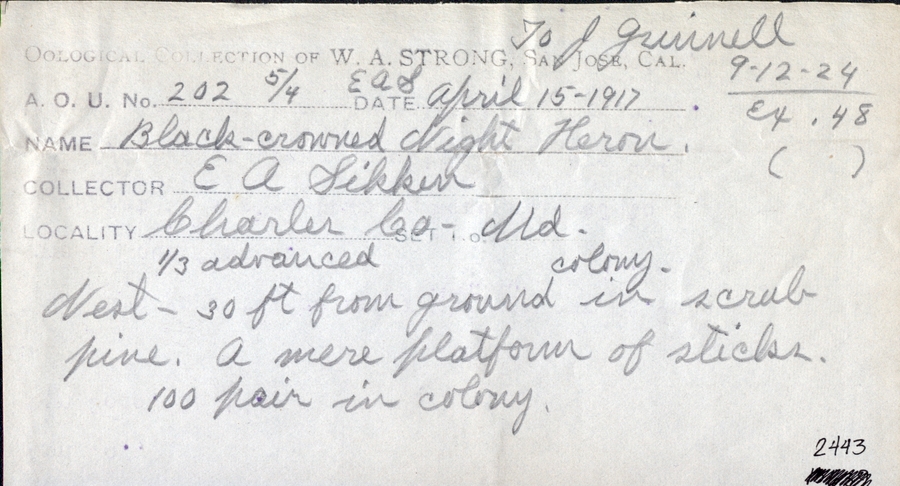 To J Grinnell
OOLOGICAL COLLECTION OF W. A. STRONG, SAN JOSE, CAL.
9-12-24
A. O. U. NO. 202 5/4 EAS DATE April 15-1917
Ex .48
NAME Black-crowned Night Heron.
( )
COLLECTOR E A Sikken
LOCALITY Charles Co- SET I.O. Md.
1/3 advanced colony.
Nest- 30 ft from ground in scrub
pine. A mere platform of sticks.
100 pair in colony.
2443